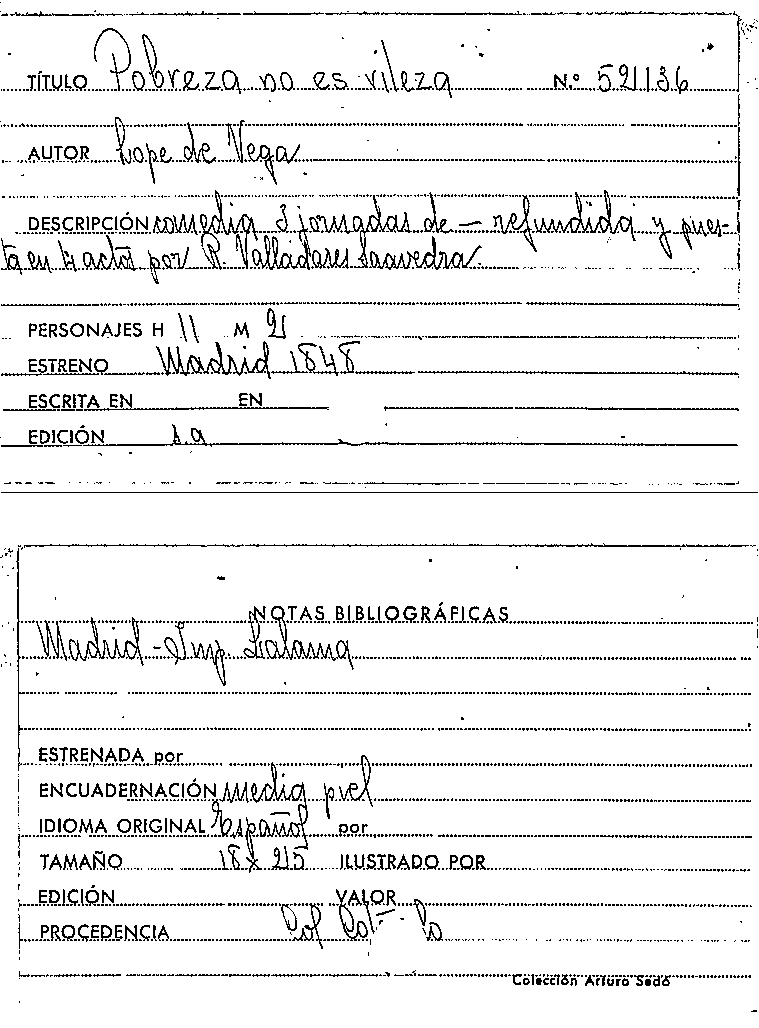 TÍTULO Pobreza no es vileza N.º 52136
AUTOR Lope de Vega
DESCRIPCIÓN comedia 3 jornadas de — refundida y pues-
ta en 4 actos por R. Valladares Saavedra.
PERSONAJES H 11 M 2
ESTRENO Madrid 1848
ESCRITA EN EN
EDICIÓN s.a
NOTAS BIBLIOGRÁFICAS
Madrid - Imp. Lalama
ESTRENADA por
ENCUADERNACIÓN media piel
IDIOMA ORIGINAL Español por
TAMAÑO 18 x 25 ILUSTRADO POR
EDICIÓN VALOR
PROCEDENCIA Col
Colección Arturo Sedó